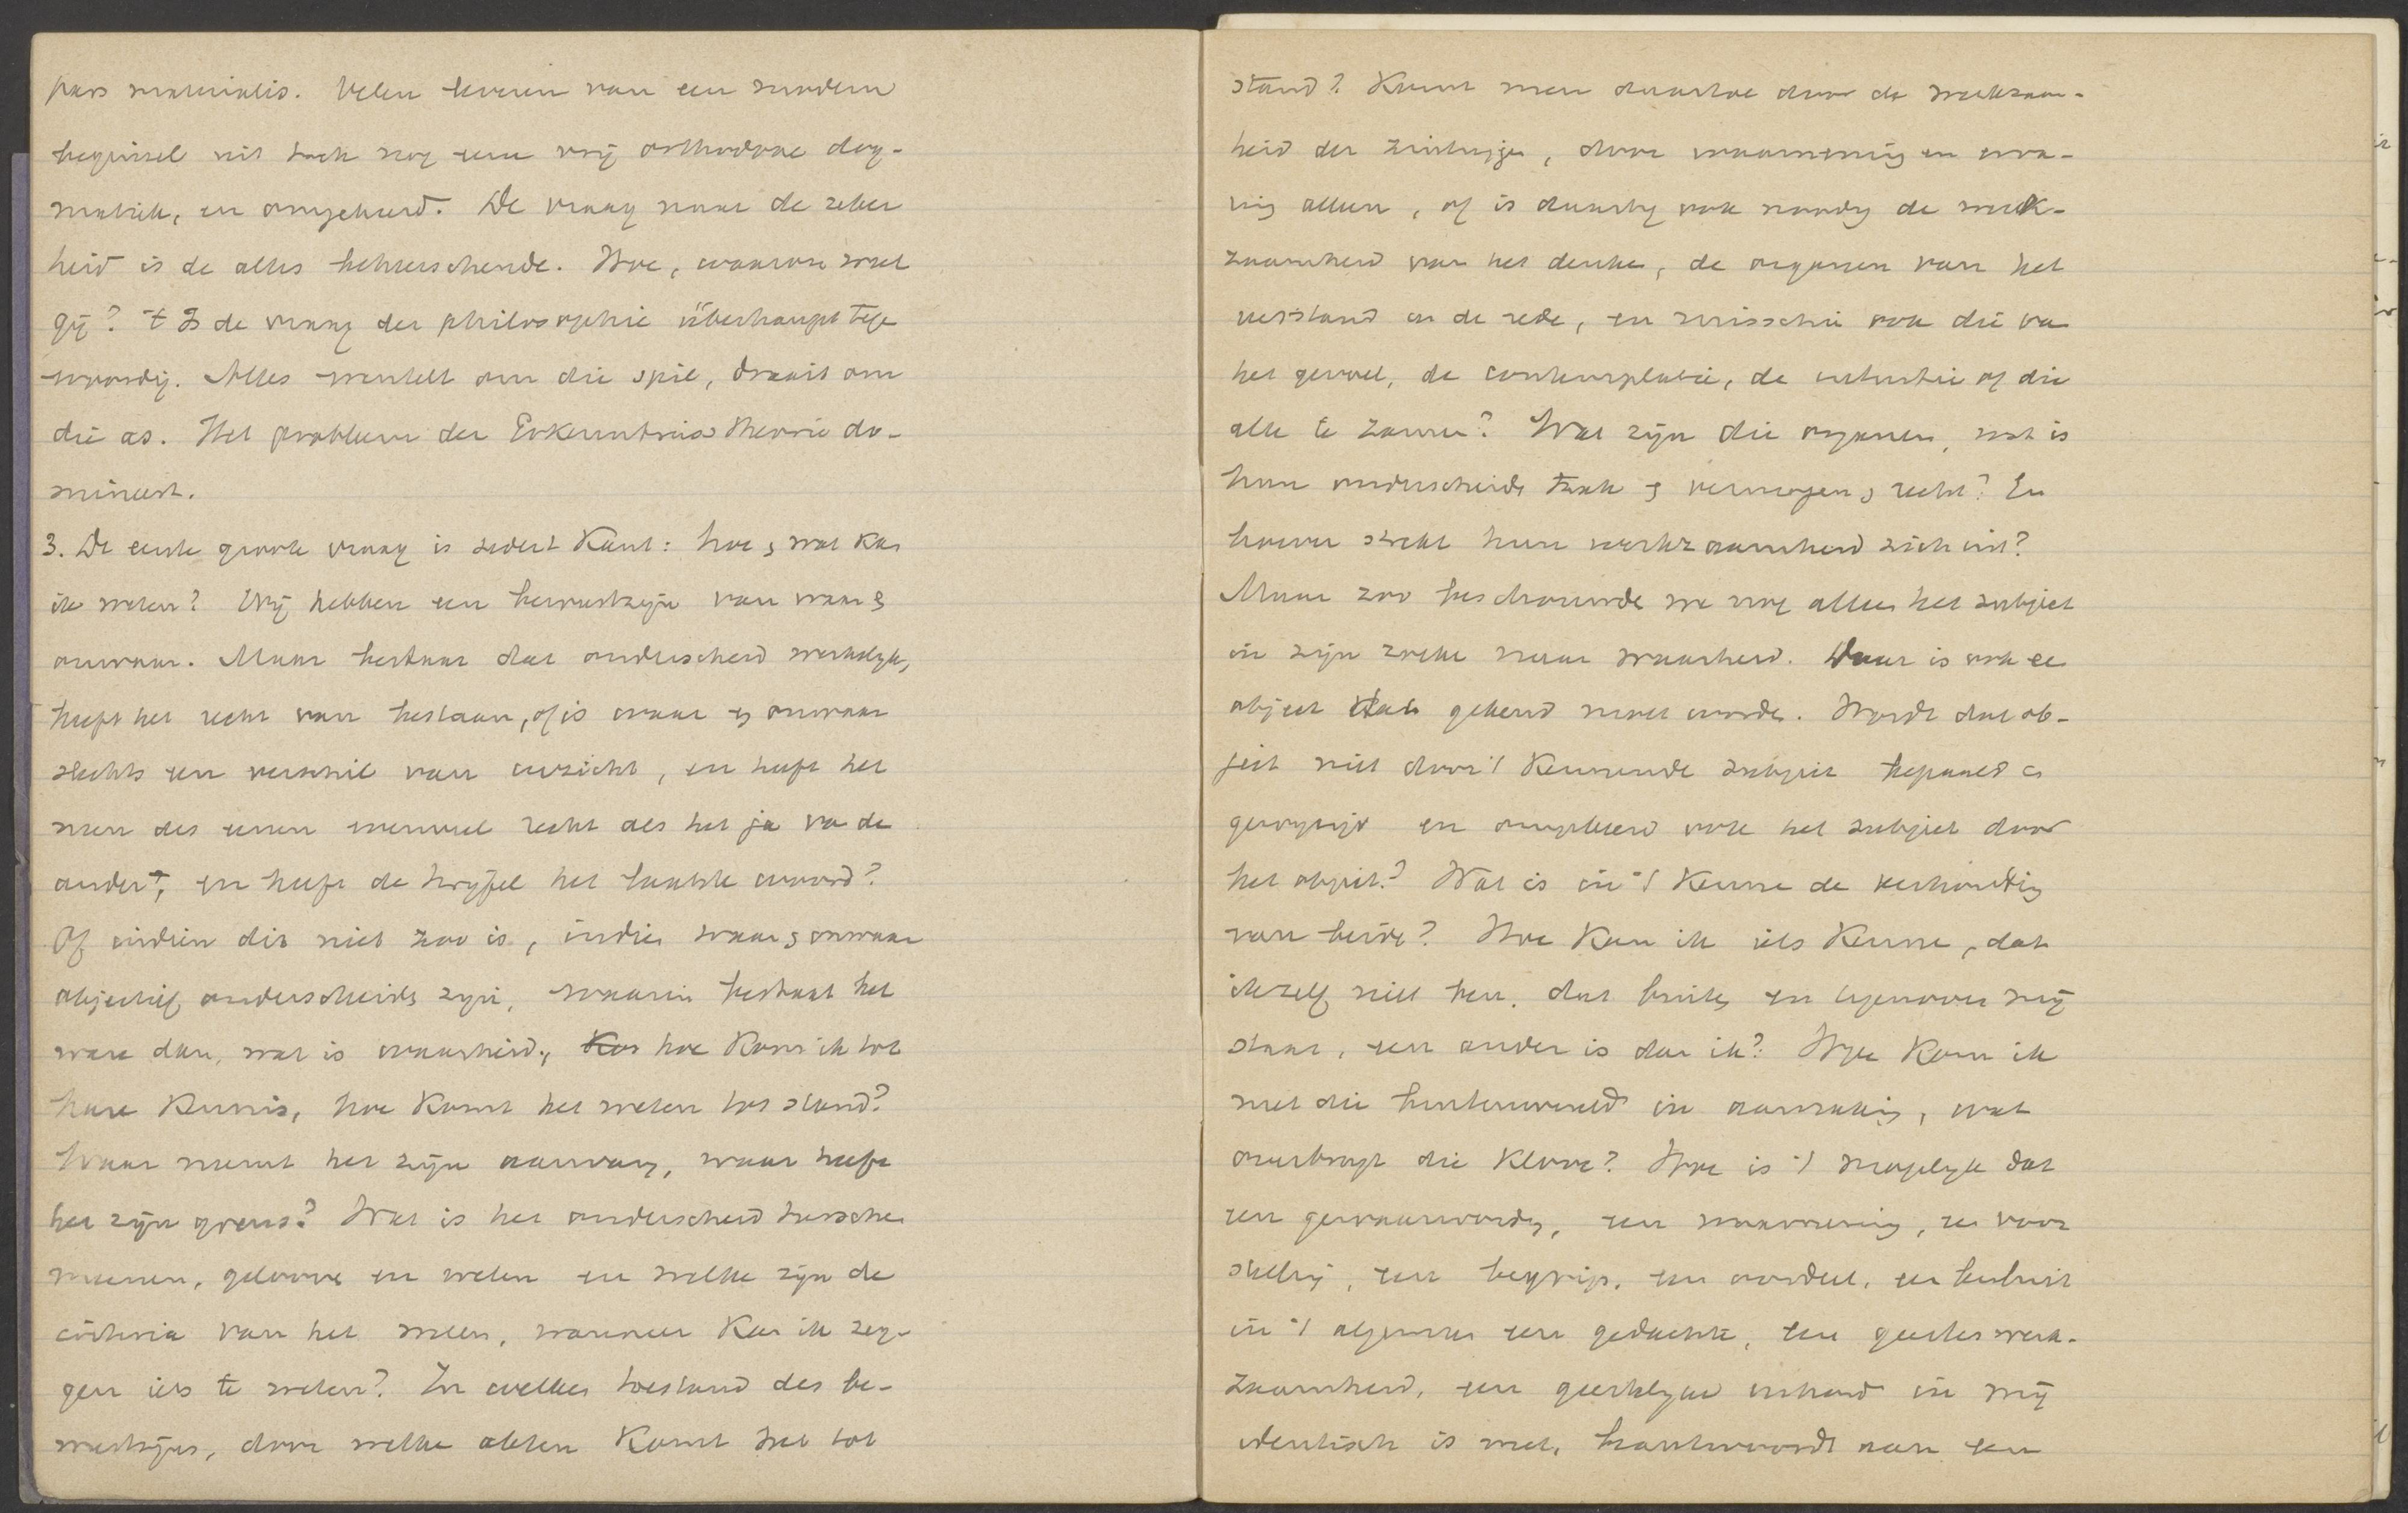 pars materialis. Velen leveren van een modern
beginsel uit toch nog een vrij orthodoxe dog-
matiek, en omgekeerd. De vraag naar de zeker
heid is de alles beheerschende. Hoe, waarom weet
gij? 't Is de vraag der philosophie überhaupt tege
woordig. Alles wentelt om die spil, draait om
die as. Het probleem der Erkenntniss theorie do-
mineert.
3. De eerste groote vraag is sedert Kant: hoe & wat kan
ik weten? Wij hebben een bewustzijn van waar &
onwaar. Maar bestaat dat onderscheid werkelijk,
heeft het recht van bestaan, of is waar en onwaar
slechts een verschil van inzicht, en heeft het
neen des eenen evenveel recht als het ja va de
ander, en heeft de twijfel het laatste woord?
Of indien dit niet zoo is, indien waar & onwaar
objectief onderscheide zijn, waarin bestaat het
ware dan, wat is waarheid, Kan hoe kom ik tot
hare kennis, hoe komt het weten tot stand?
Waar neemt het zijn aanvang, waar heeft
het zijn grens? Wat is het onderscheid tussche
meenen, gelooven en weten en welke zijn de
criteria van het weten, wanneer kan ik zeg-
gen iets te weten? In welken toestand des be-
wustzijns, door welke akten komt het tot
stand? Komt men daartoe door de werkzaam-
heid der zintuigen, door waarneming en erva-
ring alleen, of is daarbij ook noodig de werk-
zaamheid van het denken, de organen van het
verstand en de rede, en misschien ook die va
het gevoel, de contemplatie, de intuitie of die
alle te zamen? Wat zijn die organen, wat is
hun onderscheide taak & vermogen & recht? En
hoever strekt hun werkzaamheid zich uit?
Maar zoo beschouwde we nog alleen het subject
in zijn zoeken naar waarheid. Daar is ook ee
object dat gekend moet worde. Wordt dat ob-
ject niet door 't kennende subject bepaald en
gewijzigd en omgekeerd ook het subject door
het object? Wat is in 't kenne de verhouding
van beide? Hoe kan ik iets kenne, dat
ikzelf niet ben, dat buiten en tegenover mij
staat, een ander is dan ik? Hoe kom ik
met die buitenwereld in aanraking, wat
overbrugt die kloof? Hoe is 't mogelijk dat
een gewaarwording, een waarneming, ee voor
stelling, een begrip, een oordeel, een besluit
in 't algemeen een gedachte, een geesteswerk-
zaamheid, een geestelijke inhoud in mij
identisch is met, beantwoordt aan een